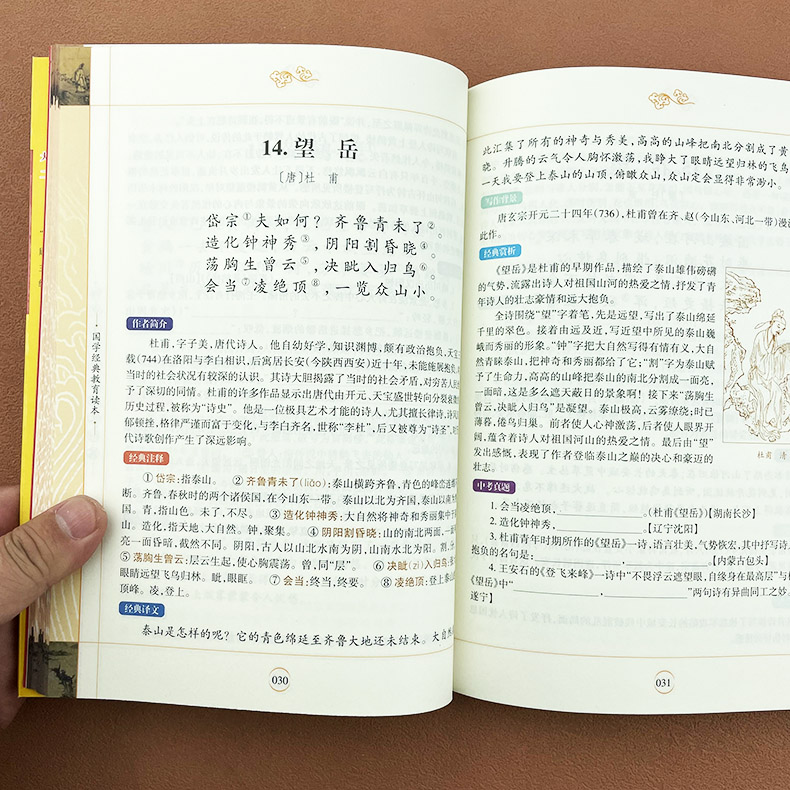 14.望 岳
〔唐〕杜 甫
岱宗①夫如何？齐鲁青未了②。
造化钟神秀③，阴阳割昏晓④。
荡胸生曾云⑤，决眦入归鸟⑥。
会当⑦凌绝顶⑧，一览众山小。
作者简介
杜甫，字子美，唐代诗人。他自幼好学，知识渊博，颇有政治抱负，天宝三
载(744)在洛阳与李白相识，后寓居长安(今陕西西安)近十年，未能施展抱负，
当时的社会状况有较深的认识。其诗大胆揭露了当时的社会矛盾，对穷苦人民
予了深切的同情。杜甫的许多作品显示出唐代由开元、天宝盛世转向分裂衰微
历史过程，被称为“诗史”。他是一位极具艺术才能的诗人，尤其擅长律诗，诗风
郁顿挫，格律严谨而富于变化，与李白齐名，世称“李杜”，后又被尊为“诗圣”，
代诗歌创作产生了深远影响。
经典注释
①岱宗:指泰山。 ②齐鲁青未了(liǎo):泰山横跨齐鲁，青色的峰峦连绵
断。齐鲁，春秋时的两个诸侯国，在今山东一带。泰山以北为齐国，泰山以南为
国。青，指山色。未了，不尽。 ③造化钟神秀:大自然将神奇和秀丽集中于
山。造化，指天地、大自然。钟，聚集。 ④阴阳割昏晓:山的南北两面，一面
亮一面昏暗，截然不同。阴阳，古人以山北水南为阴，山南水北为阳。割，
⑤荡胸生曾云:层云生起，使心胸震荡。曾，同“层”。 ⑥决眦(zì)入归鸟:
眼睛远望飞鸟归林。眦，眼眶。 ⑦会当:终当，终要。 ⑧凌绝顶:登上泰山
顶峰。凌，登上。
经典译文
泰山是怎样的呢？它的青色绵延至齐鲁大地还未结束。大自然
030
国学经典教育读本
此汇集了所有的神奇与秀美，高高的山峰把南北分割成了黄
晓。升腾的云气令人胸怀激荡，我睁大了眼睛远望归林的飞鸟
一天我要登上泰山的山顶，俯瞰众山，众山定会显得非常渺小。
写作背景
唐玄宗开元二十四年(736)，杜甫曾在齐、赵(今山东、河北一带)漫
此作。
经典赏析
《望岳》是杜甫的早期作品，描绘了泰山雄伟磅礴
的气势，流露出诗人对祖国山河的热爱之情，抒发了青
年诗人的壮志豪情和远大抱负。
全诗围绕“望”字着笔，先是远望，写出了泰山绵延
千里的翠色。接着由远及近，写近望中所见的泰山巍
峨而秀丽的形象。“钟”字把大自然写得有情有义，大自
然青睐泰山，把神奇和秀丽都给了它；“割”字为泰山赋
予了生命力，高高的山峰把泰山的南北分割成一面亮，
一面暗，这是多么遮天蔽日的景象啊！接下来“荡胸生
曾云，决眦入归鸟”是凝望。泰山极高，云雾缭绕；时已
薄暮，倦鸟归巢。前者使人心神激荡，后者使人眼界开
阔，蕴含着诗人对祖国河山的热爱之情。最后由“望”
发出感慨，表现了作者登临泰山之巅的决心和豪迈的
壮志。
杜甫 清
中考真题
1. 会当凌绝顶，____________。(杜甫《望岳》)【湖南长沙】
2. 造化钟神秀，____________。【辽宁沈阳】
3. 杜甫青年时期所作的《望岳》一诗，语言壮美，气势恢宏，其中抒写诗
抱负的名句是：____________，____________。【内蒙古包头】
4. 王安石的《登飞来峰》一诗中“不畏浮云遮望眼，自缘身在最高层”与
《望岳》中“____________，____________”两句诗有异曲同工之妙。
遂宁】
031